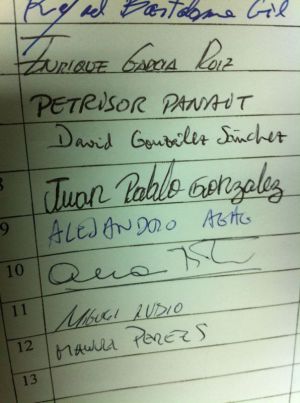 Rafael Bartolome Gil
ENRIQUE GARCIA RUIZ
PETRISOR PANAUT
David González Sánchez
8 Juan Pablo Gonzalez
9 ALEJANDRO
10
11 MIGUEL RUBIO
12 PEREZ S
13